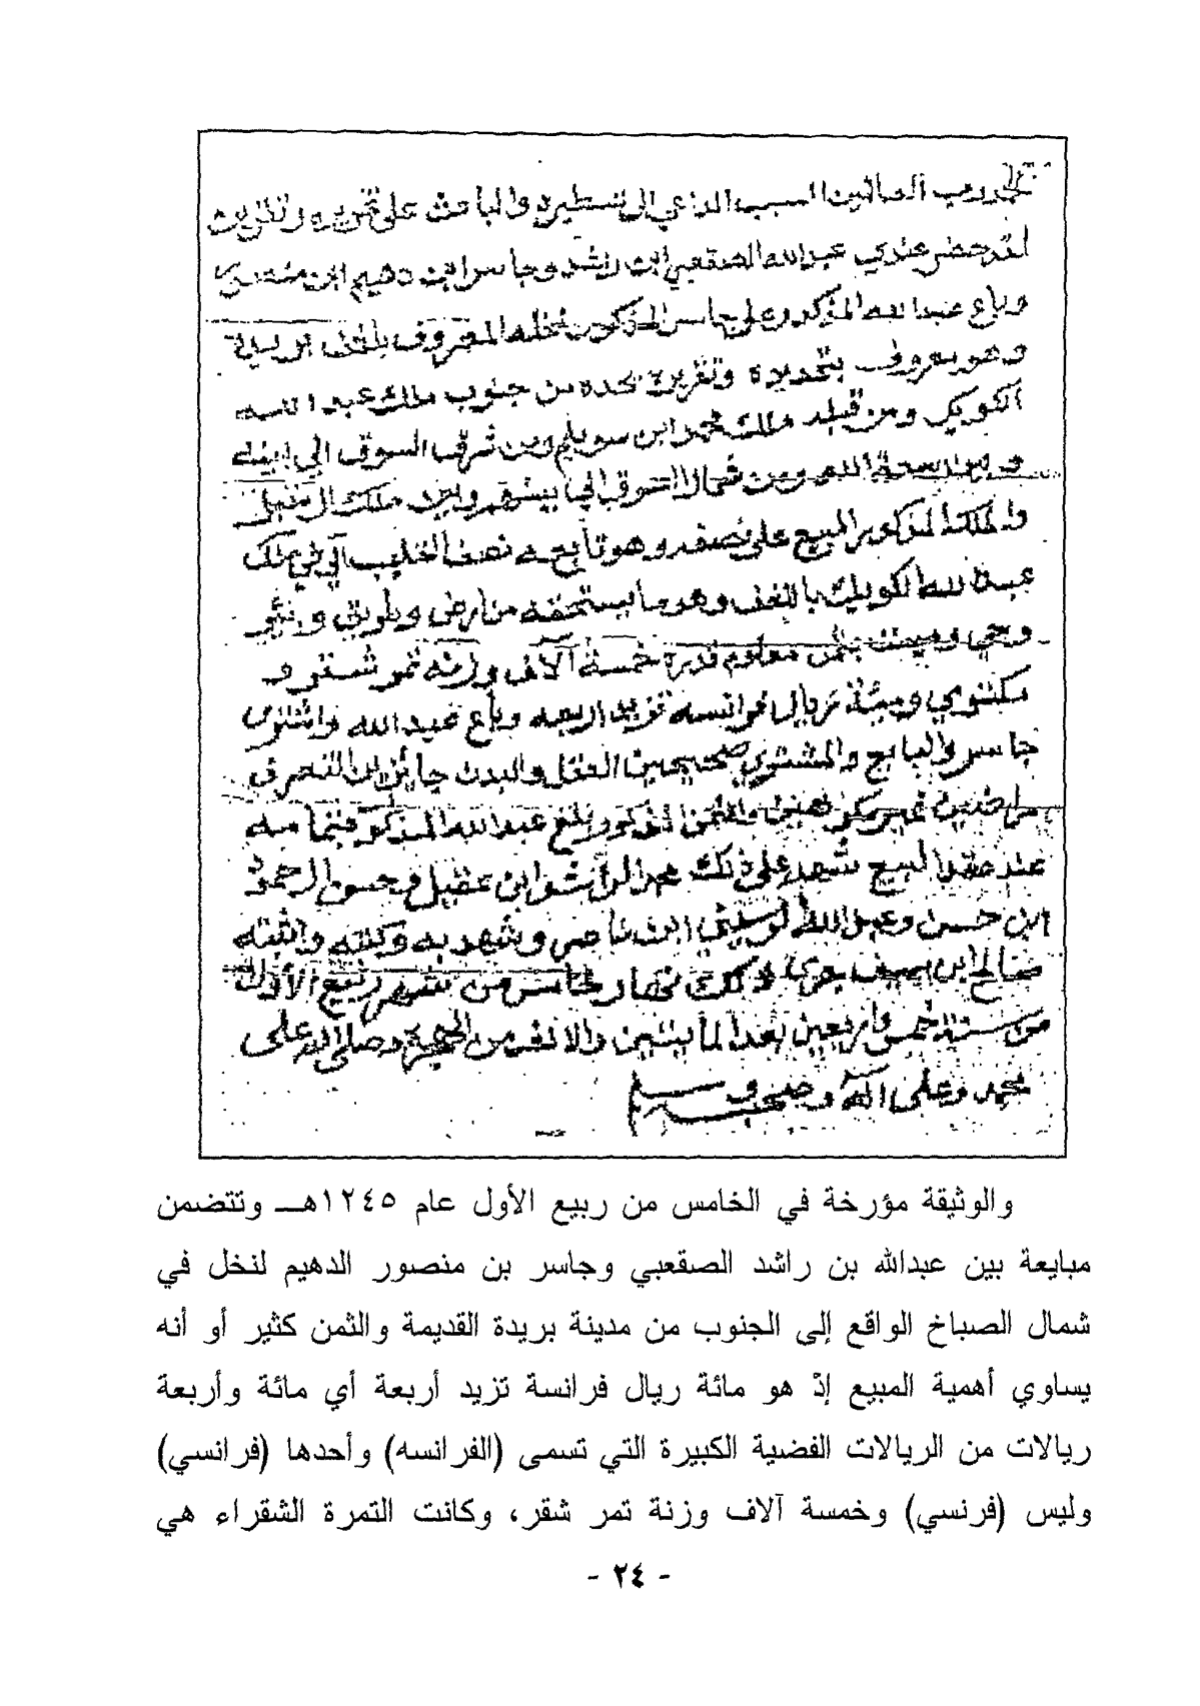 رب العالمين السبب الداعي إلى تسطيره والباعث على تحريره وتقريره
لقد حضر عندي عبد الله الصقعبي ابن راشد وجاسر ابن دهيم ابن منصور
وباع عبد الله المذكور على جاسر المذكور نخله المعروف
وهو معروف بتحديده وتقريره يحده من جنوب ملك عبد الله
الكويك ومن قبله ملك محمد ابن سويلم ومن شرق السوق
ومن شمال السوق ملك
والملك المذكور المبيع على نصفه وهو تابعه نصف القليب
عبد الله الكويك وهو ما يستحقه من ارض وطريق وبئر
وحي وميت بثمن معلوم قدره خمسة آلاف وزنة تمر شقر و
مكتومي ومئة ريال فرانسه تزيد اربعه وباع عبد الله واشترى
جاسر والبايع والمشتري صحيحين العقل والبدن جايزين التصرف
غير مكرهين والثمن المذكور بلغ عبد الله المذكور
عند عقد البيع شهد على ذلك محمد الراشد ابن عقيل وحسن الحمود
ابن حسن وعبد الله ابن ناصر وشهد به وكتبه واثبته
صالح ابن سيف جرى ذلك نهار خامس من شهر ربيع الأول
من سنة خمس واربعين بعد المايتين والالف من الهجرة وصلى الله على
محمد وعلى آله وصحبه وسلم
والوثيقة مؤرخة في الخامس من ربيع الأول عام ١٢٤٥هـ وتتضمن
مبايعة بين عبدالله بن راشد الصقعبي وجاسر بن منصور الدهيم لنخل في
شمال الصباخ الواقع إلى الجنوب من مدينة بريدة القديمة والثمن كثير أو أنه
يساوي أهمية المبيع إذّ هو مائة ريال فرانسة تزيد أربعة أي مائة وأربعة
ريالات من الريالات الفضية الكبيرة التي تسمى (الفرانسه) وأحدها (فرانسي)
وليس (فرنسي) وخمسة آلاف وزنة تمر شقر، وكانت التمرة الشقراء هي
- ٢٤ -